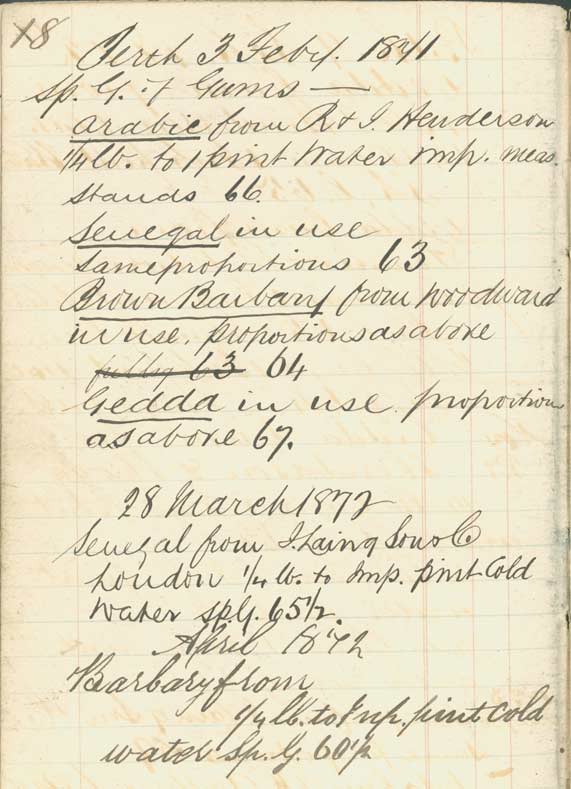 18
Perth 3 Feby. 1871
Sp. G. of Gums —
Arabic from R & J. Henderson
1/4 lb. to 1 pint Water imp. meas.
Stands 66.
Senegal in use
same proportions 63
Brown Barbary from Woodward
in use. proportions as above
fully 63 64
Gedda in use. proportions
as above 67.
28 March 1872
Senegal from J. Laing Son & Co
London 1/4 lb. to Imp. pint Cold
Water sp.G. 65 1/2.
April 1872
Barbary from
1/4 lb. to Imp. pint Cold
water Sp. G. 60 1/2